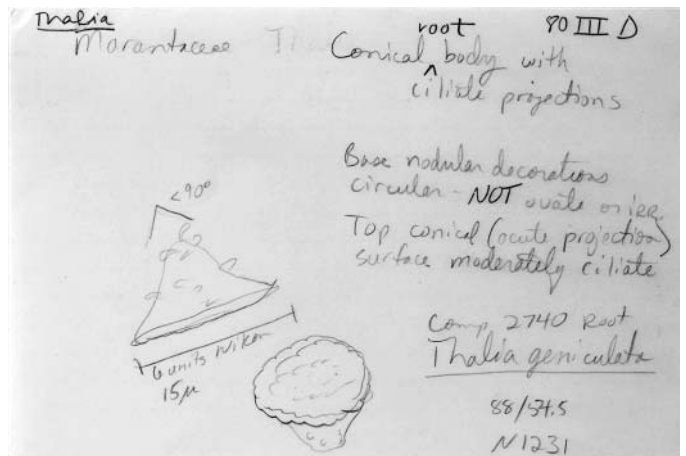 Thalia
Marantaceae
root 80 III D
Conical ^ body with
ciliate projections
Base nodular decorations
circular - NOT ovate or irr.
Top conical (acute projection)
surface moderately ciliate
<90°
6 units Nikon
15µ
Comp. 2740 Root
Thalia geniculata
88/54.5
N1231